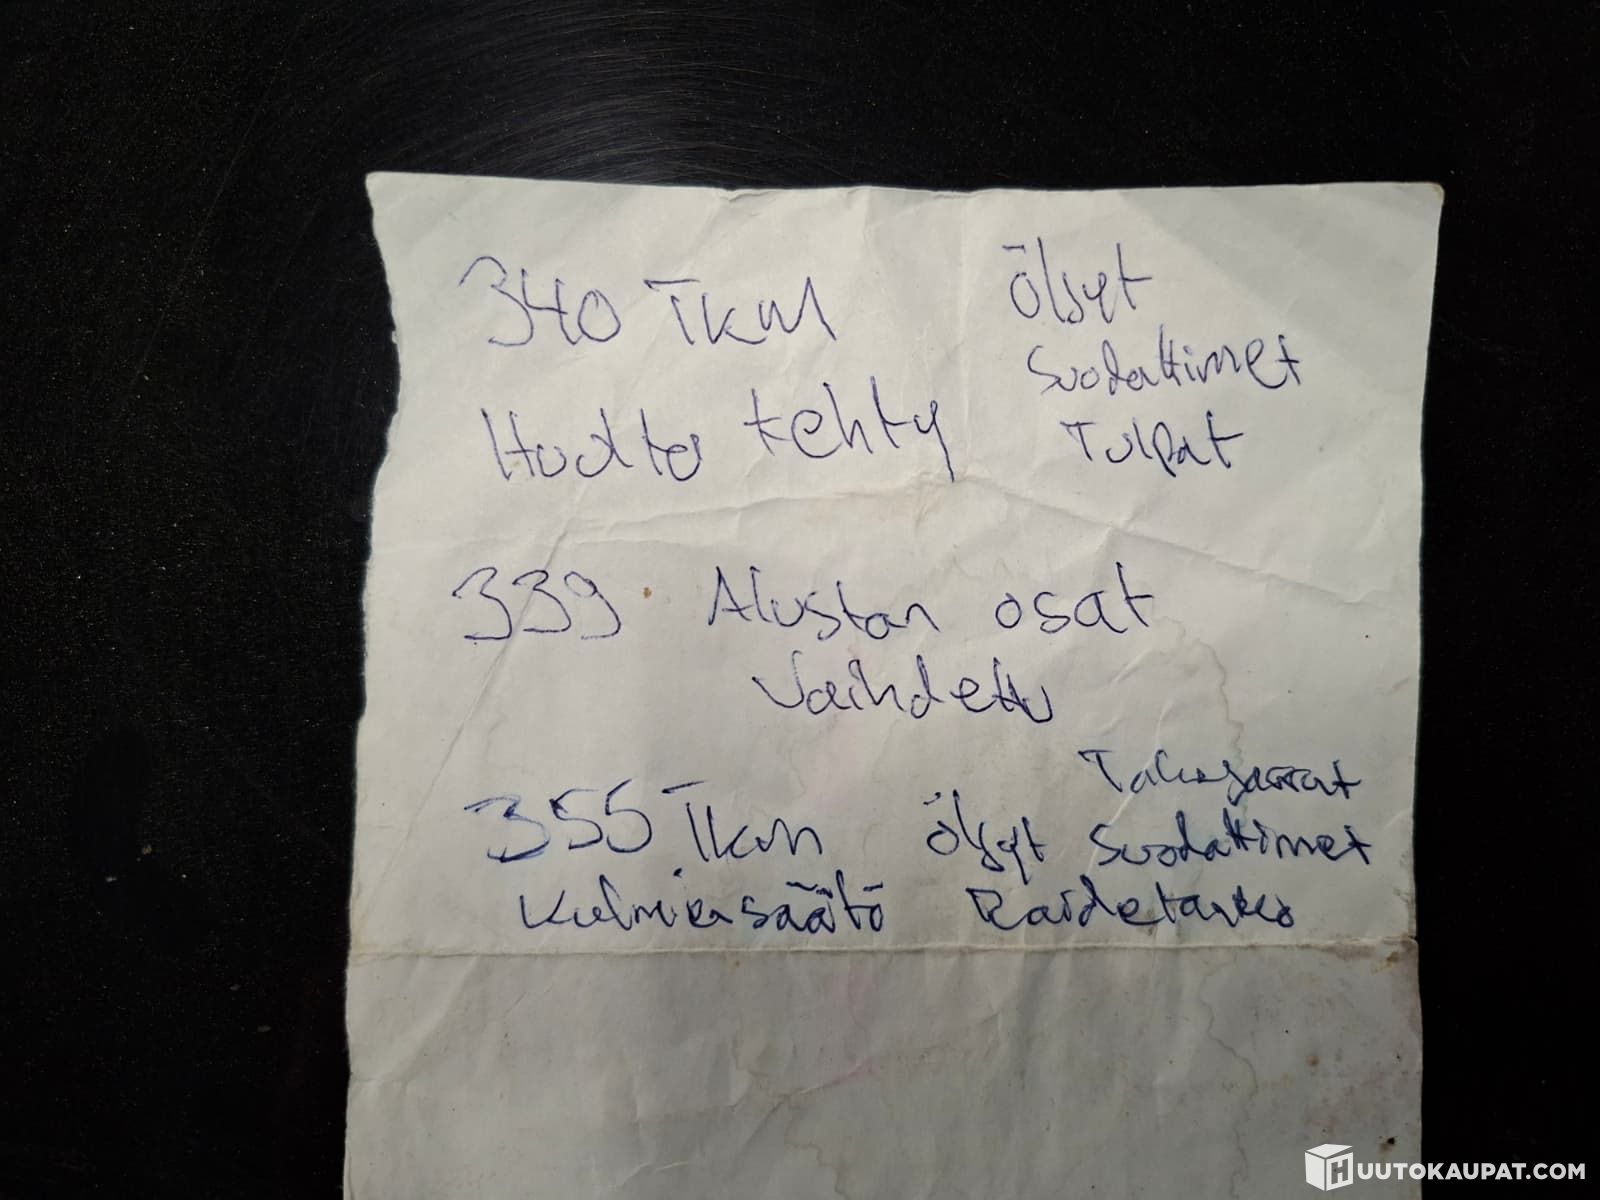 340 Tkm Öljyt
Suodattimet
Huolto tehty Tulpat
339 Alustan osat
Vaihdettu
Takajarrut
355 Tkm Öljyt Suodattimet
Kulmiensäätö Raidetanko
HUUTOKAUPAT.COM